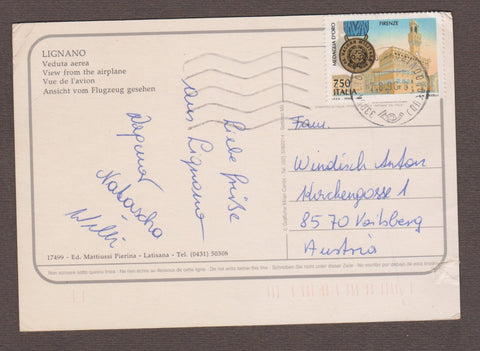 LIGNANO
Veduta aerea
View from the airplane
Vue de l'avion
Ansicht vom Flugzeug gesehen
Liebe Grüße
aus Lignano
Dagmar
Natascha
Willi
MEDAGLIA D'ORO
FIRENZE
750
ITALIA
Fam.
Windisch Anton
Kirchengasse 1
8570 Voitsberg
Austria
17499 - Ed. Mattiussi Pierina - Latisana - Tel. (0431) 50308
Non scrivere sotto questa linea - Ne rien écrire au-dessous de cette ligne - Do not write below this line - Schreiben Sie nicht unter dieser Zeile